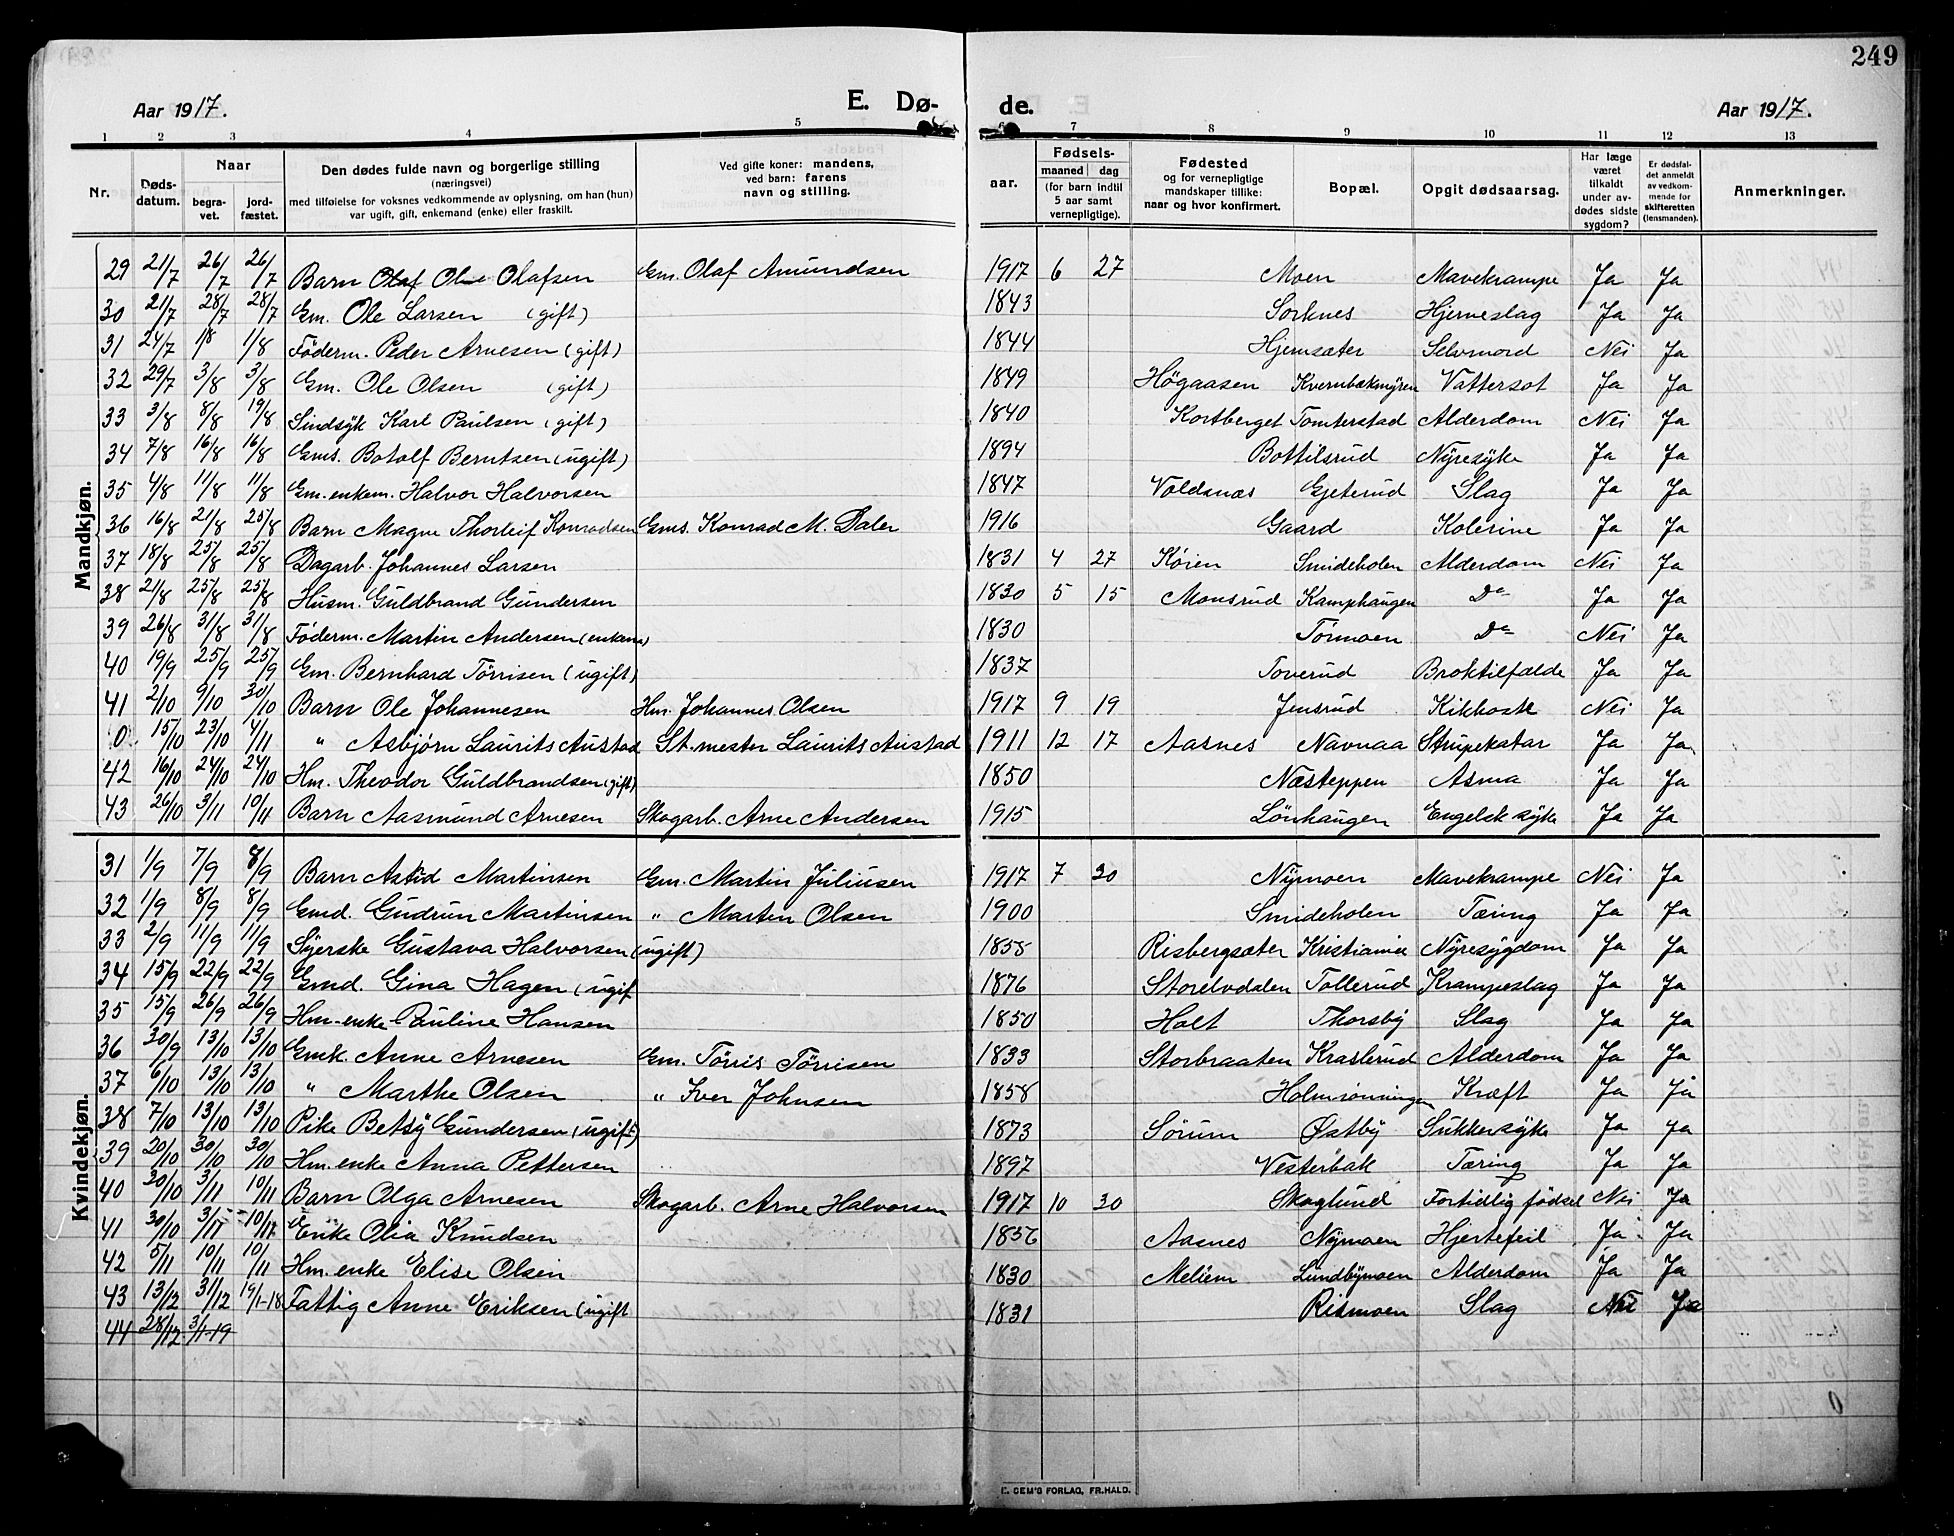 249
Aar 1917. E. Dø- de. Aar 1917.
1 2 3 4 5 6 7 8 9 10 11 12 13
Nr. Døds-datum. Naar begra-vet. jord-fæstet. Den dødes fulde navn og borgerlige stilling (næringsvei) med tilføielse for voksnes vedkommende av oplysning, om han (hun) var ugift, gift, enkemand (enke) eller fraskilt. Ved gifte koner: mandens, ved barn: farens navn og stilling. Fødsels- aar. maaned dag (for barn indtil 5 aar samt vernepligtige). Fødested og for vernepligtige mandskaper tillike: naar og hvor konfirmert. Bopæl. Opgit dødsaarsag. Har læge været tilkaldt under av-dødes sidste sygdom? Er dødsfal-det anmeldt av vedkom-mende for skifteretten (lensmanden). Anmerkninger.
Mandkjøn.
29 21/7 26/7 26/7 Barn Olaf Ole Olafsen Gm. Olaf Amundsen 1917 6 27 Moen Mavekrampe Ja Ja
30 21/7 28/7 28/7 Gm. Ole Larsen (gift) 1843 Sorknes Hjerneslag Ja Ja
31 24/7 1/8 1/8 Föderm. Peder Arnesen (gift) 1844 Hjemsæter Selvmord Nei Ja
32 29/7 3/8 3/8 Gm. Ole Olsen (gift) 1849 Högaasen Kvernbækmyren Vattersot Ja Ja
33 3/8 8/8 19/8 Sindsyk Karl Paulsen (gift) 1840 Kortberget Tomterstad Alderdom Nei Ja
34 7/8 16/8 16/8 Gms. Botolf Berntsen (ugift) 1894 Bottilsrud Nyresyke Ja Ja
35 4/8 11/8 11/8 Gm. enkem. Halvor Halvorsen 1847 Voldsnæs Gjeterud Slag Ja Ja
36 16/8 21/8 25/8 Barn Magne Thorleif Konradsen Gms. Konrad M. Daler 1916 Gaard Kolerine Ja Ja
37 18/8 25/8 25/8 Dagarb. Johannes Larsen 1831 4 27 Köien Smideholen Alderdom Nei Ja
38 21/8 25/8 25/8 Husm. Guldbrand Gundersen 1830 5 15 Monsrud Kamphaugen Do Ja Ja
39 26/8 31/8 31/8 Föderm. Martin Andersen (enkem) 1830 Törmoen Do Nei Ja
40 19/9 25/9 25/9 Gm. Bernhard Törrisen (ugift) 1837 Toverud Broktilfælde Ja Ja
41 2/10 9/10 30/10 Barn Ole Johannesen Hm. Johannes Olsen 1917 9 19 Jensrud Kikhoste Nei Ja
0 15/10 23/10 4/11 " Asbjørn Laurits Austad St.mester Laurits Austad 1911 12 17 Aasnes Navnaa Strupekatar Ja Ja
42 16/10 24/10 24/10 Hm. Theodor Guldbrandsen (gift) 1850 Næsteppen Asma Ja Ja
43 26/10 3/11 10/11 Barn Aasmund Arnesen Skogarb. Arne Andersen 1915 Lönhaugen Engelsk syke Ja Ja
Kvindekjøn.
31 1/9 7/9 8/9 Barn Astrid Martinsen Gm. Martin Juliusen 1917 7 30 Nymoen Mavekrampe Nei Ja
32 1/9 8/9 8/9 Gmd. Gudrun Martinsen " Martin Olsen 1900 Smideholen Tæring Ja Ja
33 2/9 11/9 11/9 Syerske Gustava Halvorsen (ugift) 1855 Risbergsæter Kristiania Nyresygdom Ja Ja
34 15/9 22/9 22/9 Gmd. Gina Hagen (ugift 1876 Storelvdalen Tollerud Krampeslag Ja Ja
35 15/9 26/9 26/9 Hm. enke Pauline Hansen 1850 Holt Thorsby Slag Ja Ja
36 30/9 13/10 13/10 Gmk Anne Arnesen Gm. Törris Törrisen 1833 Storbraaten Krasterud Alderdom Ja Ja
37 6/10 13/10 13/10 " Marthe Olsen " Iver Johnsen 1858 Holmrönningen Kræft Ja Ja
38 7/10 13/10 13/10 Pike Betsy Gundersen (ugift) 1873 Sörum Østby Sukkersyke Ja Ja
39 20/10 30/10 30/10 Hm. enke Anna Pettersen 1897 Vesterbæk Tæring Ja Ja
40 30/10 3/11 10/11 Barn Olga Arnesen Skogarb. Arne Halvorsen 1917 10 30 Skoglund Fortidlig födsel Nei Ja
41 30/10 3/11 10/11 Enke Olia Knudsen 1856 Aasnes Nymoen Hjertefeil Ja Ja
42 5/11 10/11 10/11 Hm. enke Elise Olsen 1830 Meliem Lundbymoen Alderdom Ja Ja
43 13/12 31/12 19/1-18 Fattig Anne Eriksen (ugift 1831 Rismoen Slag Nei Ja
44 28/12 3/1-19
0
E. SEM'S FORLAG, FR.HALD.